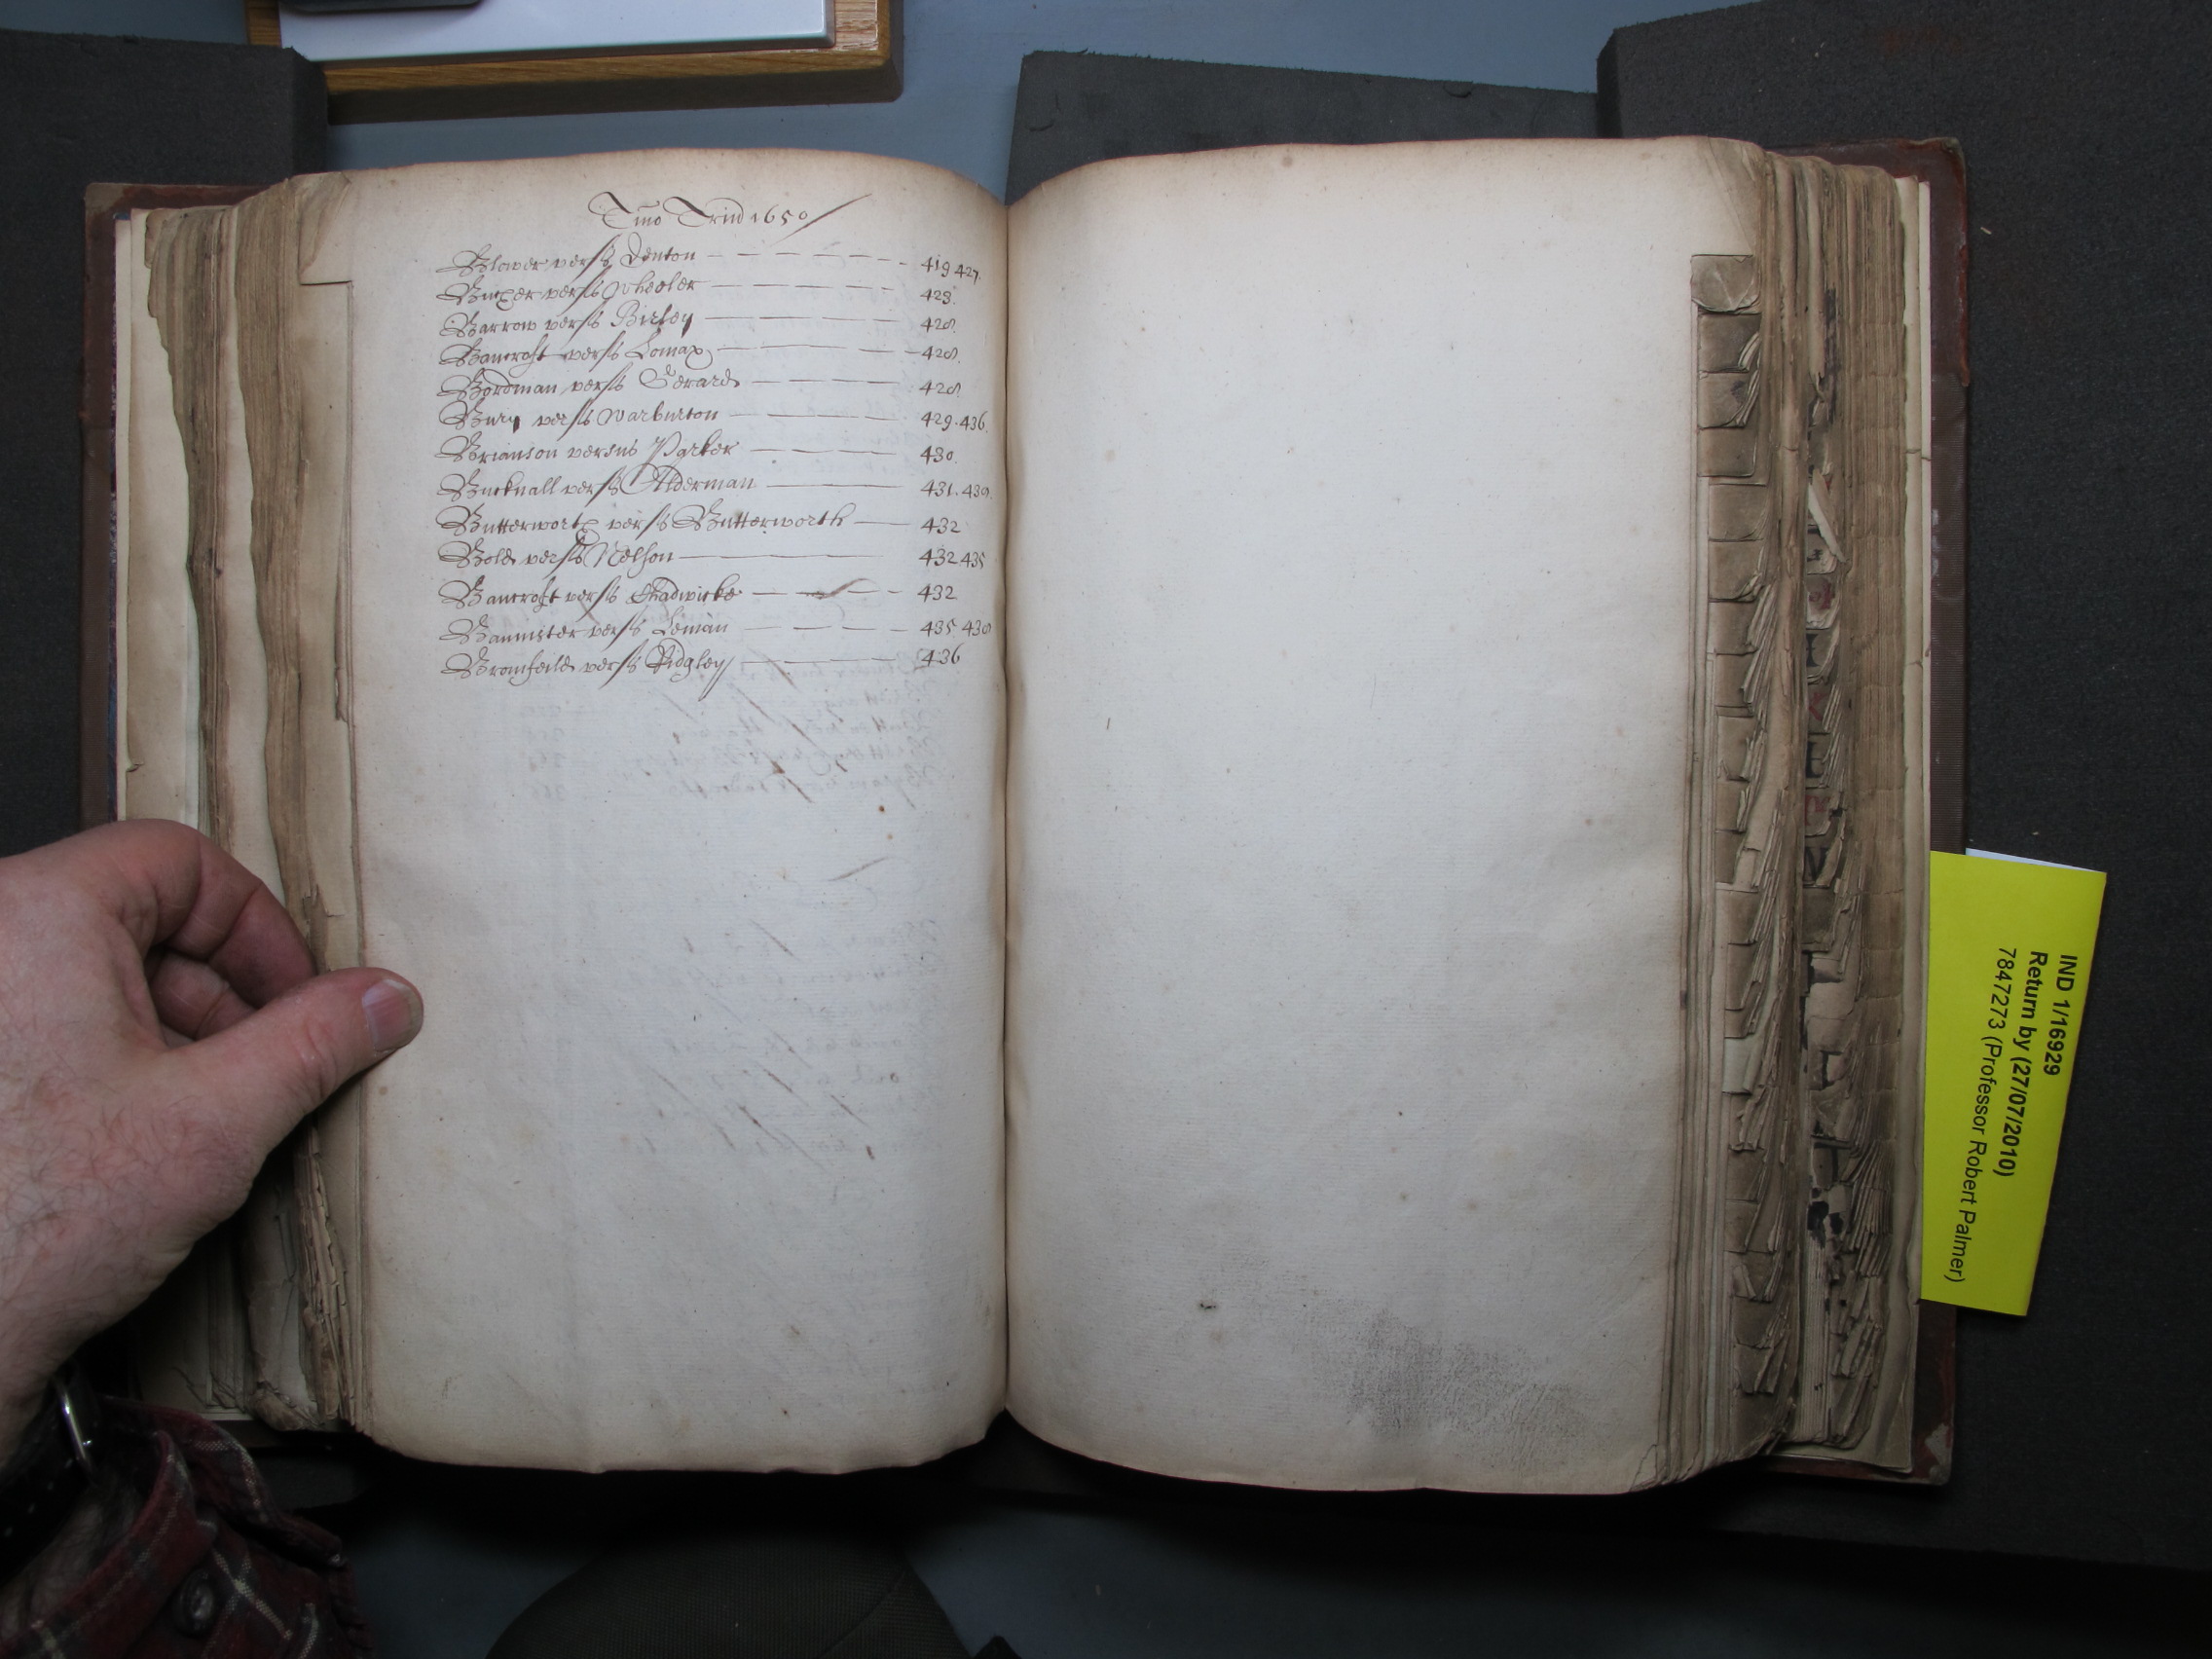 Tmo Trin 1650
Blower vers Denton 419 427.
Buxer vers Wheeler 428.
Barrow vers Birley 428.
Bancroft vers Lomax 428.
Bordman vers Gerard 428.
Bury vers Warburton 429. 436.
Brianson versus Parker 430.
Bucknall vers Alderman 431. 438.
Butterworth vers Butterworth 432
Bold vers Nelson 432 435
Bancroft vers Chadwicke 432
Bannister vers Leman 435 438
Bromfeild vers Ridgley 436
IND 1/16929
Return by (27/07/2010)
7847273 (Professor Robert Palmer)